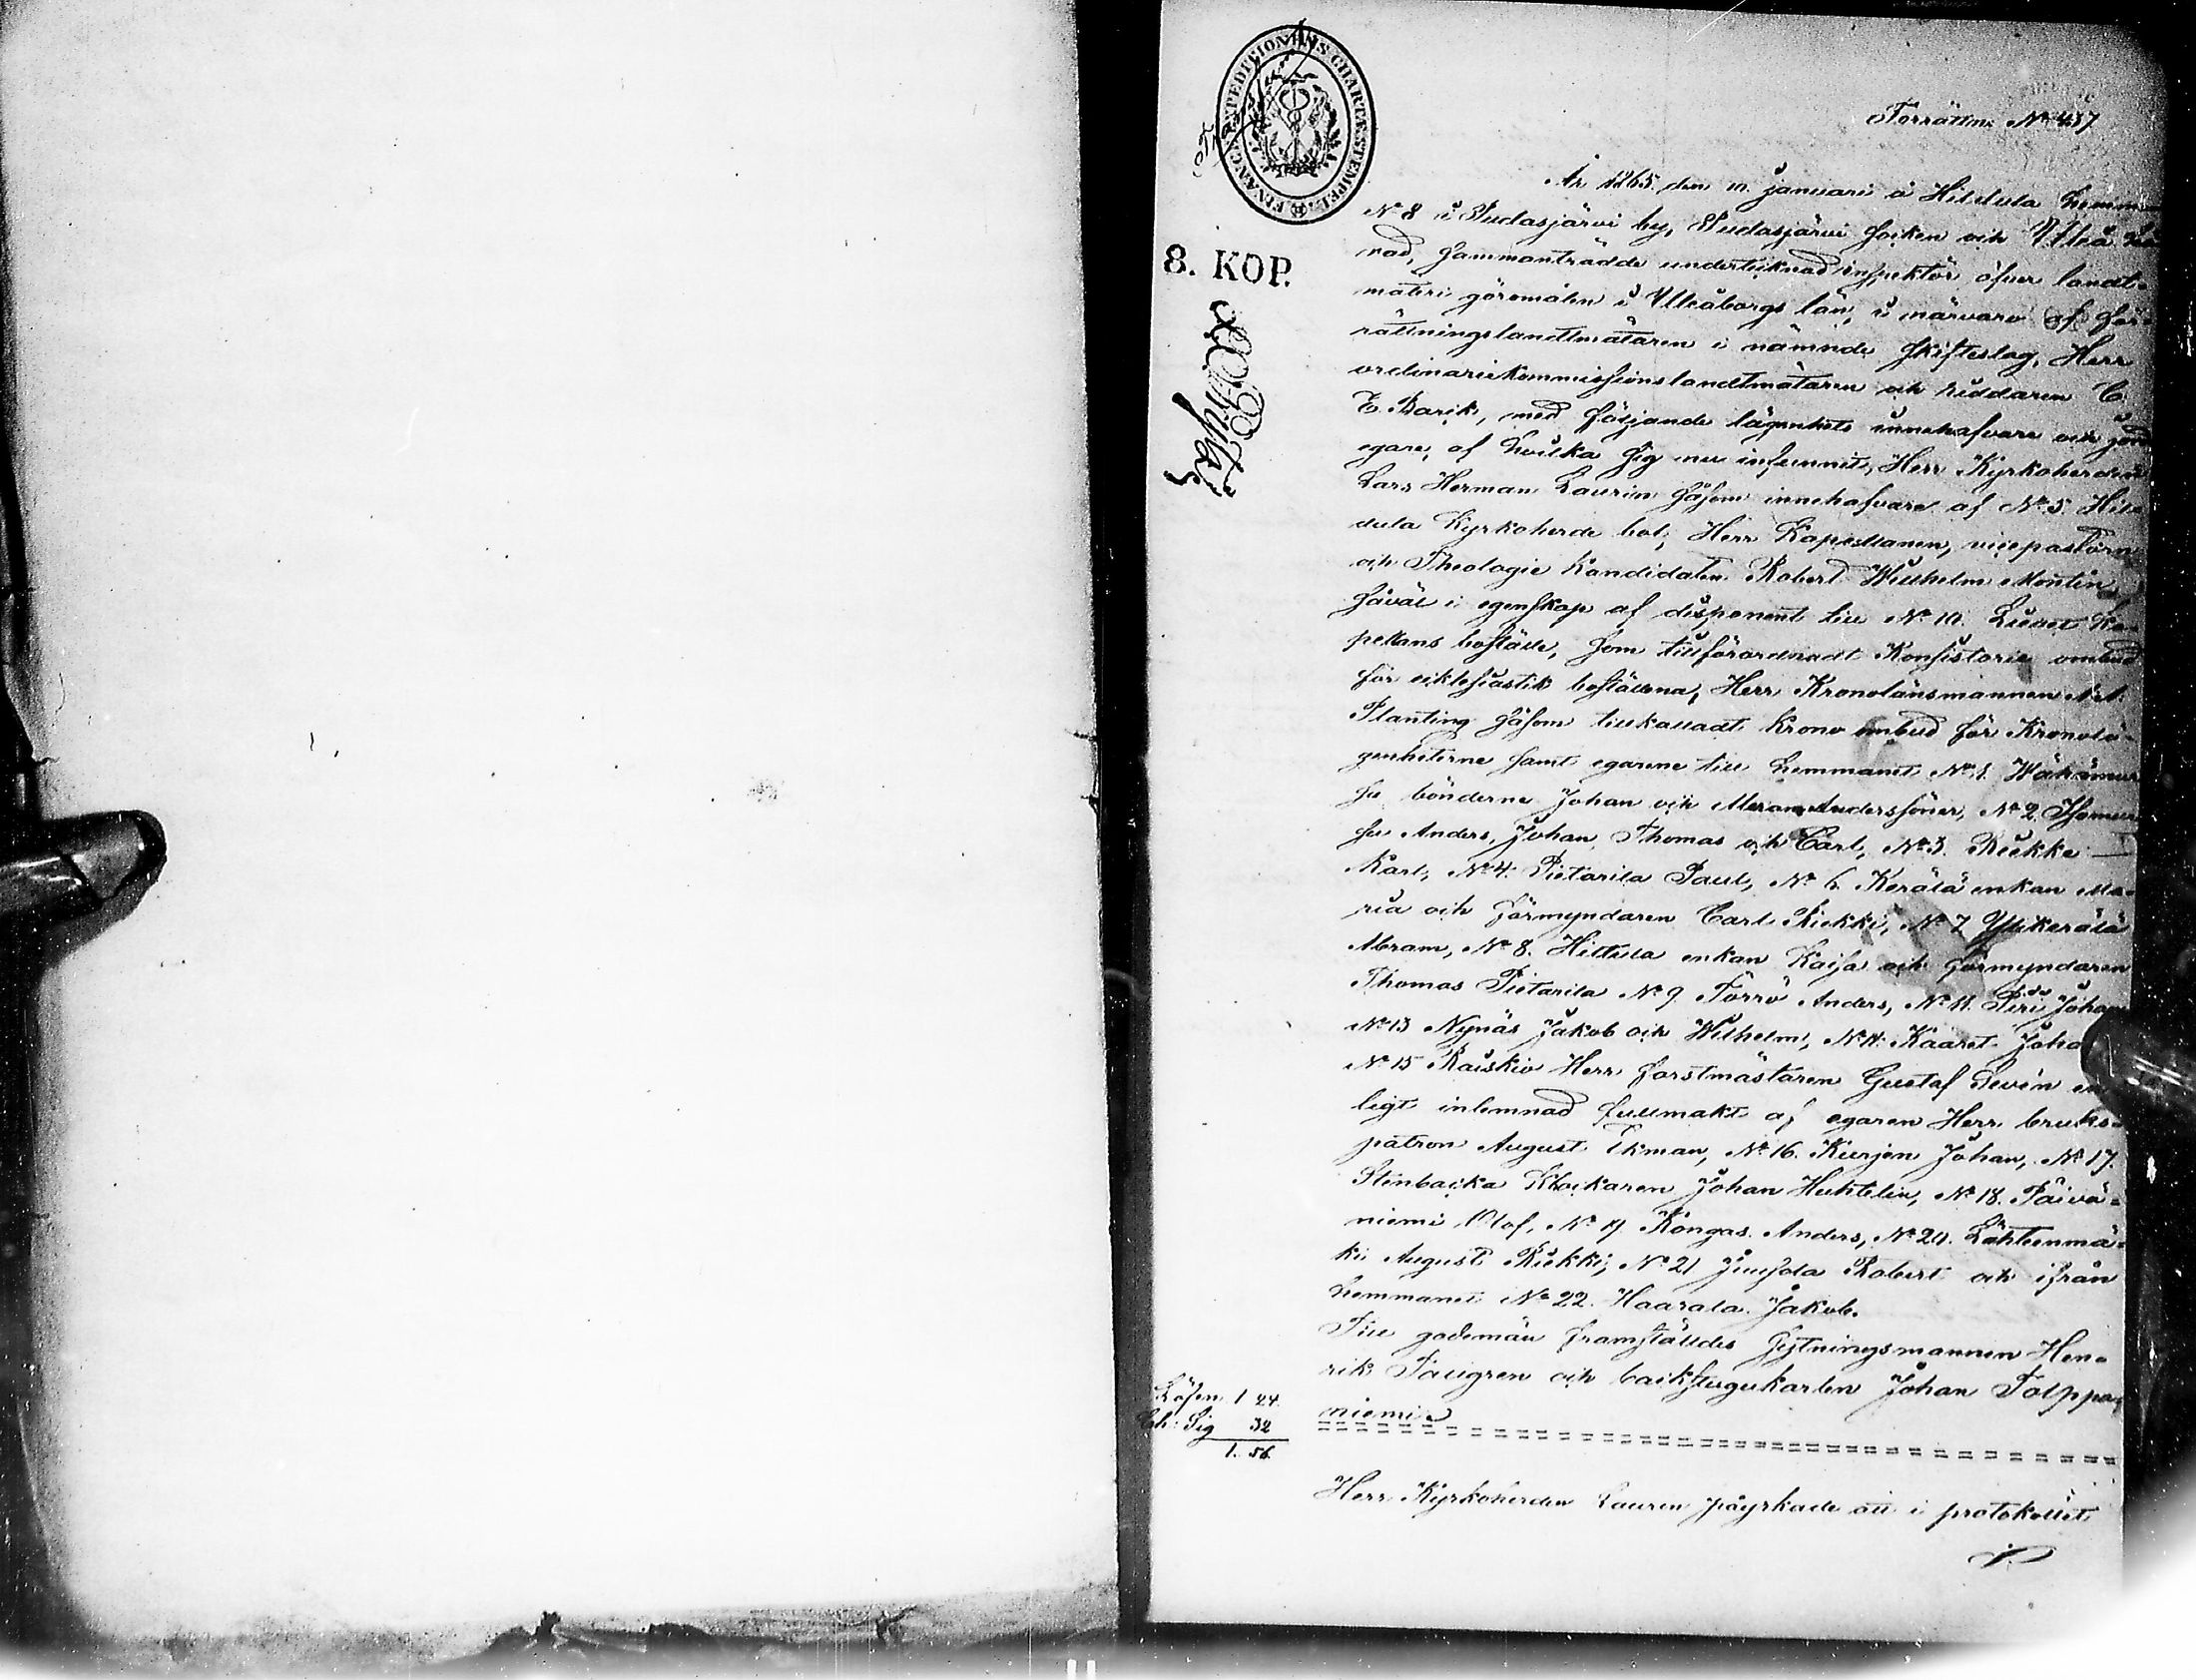 FINANCEEXPEDITIONENS CHARTÆSTEMPEL
8. KOP.
Förrättn. No 437
År 1865 den 10 januari å Hiltula hemman
No 8 i Pudasjärvi by, Pudasjärvi socken och Uleå hä-
rad, sammanträdde undertecknad inspektör öfver landt-
mäteri göromålen i Uleåborgs län, i närvaro af för-
rättningslandtmätaren i nämnde skifteslag, Herr
ordinarie kommissionslandtmätaren och riddaren C.
E. Barck, med följande lägenhets innehafvare och jord
egare, af hvilka sig nu infunnit, Herr Kyrkoherden
Lars Herman Laurin såsom innehafvare af No 5 Hil-
tula Kyrkoherde bol, Herr Kapellanen, vicepastorn
och Theologie Kandidaten Robert Wilhelm Montin
såväl i egenskap af disponent till No 10 Lievet Ka-
pellans boställe, som tillförordnadt Konsistorii ombud
för ecklesiastik boställena, Herr Kronolänsmannen
Planting såsom tillkalladt krono ombud för Kronolä-
genheterne samt egarene till hemmanet No 1
bönderne Johan och Abram Anderssöner, No 2
Anders, Johan, Thomas och Carl, No 3. Riekki
Karl, No 4. Pietarila Paul, No 6 Kerälä enkan Ma-
ria och förmyndaren Carl Riekki, No 7 Ylikerälä
Abram, No 8. Hiltula enkan Kaisa och förmyndaren
Thomas Pietarila No 9 Törrö Anders, No 11. Johan
No 13 Nynäs Jakob och Wilhelm, No 14. Kaaret Joha
No 15 Raiskio Herr forstmästaren Gustaf Sevón en-
ligt inlemnad fullmakt af egaren Herr bruks-
patron August Ekman, No 16. Kurjen Johan, No 17.
Stenbacka Klockaren Johan Huhtelin, No 18. Päivä-
niemi Olof, No 19 Kongas Anders, No 20. Lähteenmä-
ki August Riekki, No 21 Juusola Robert och ifrån
hemmanet No 22. Haarala Jakob.
Till godemän framställdes syftningsmannen Hen-
rik Paugren och backstugukarlen Johan Tolppa-
niemi
Lösen 1 24.
Ch: Sig 32
1. 56
Herr Kyrkoherden Laurin påyrkade att i protokollet